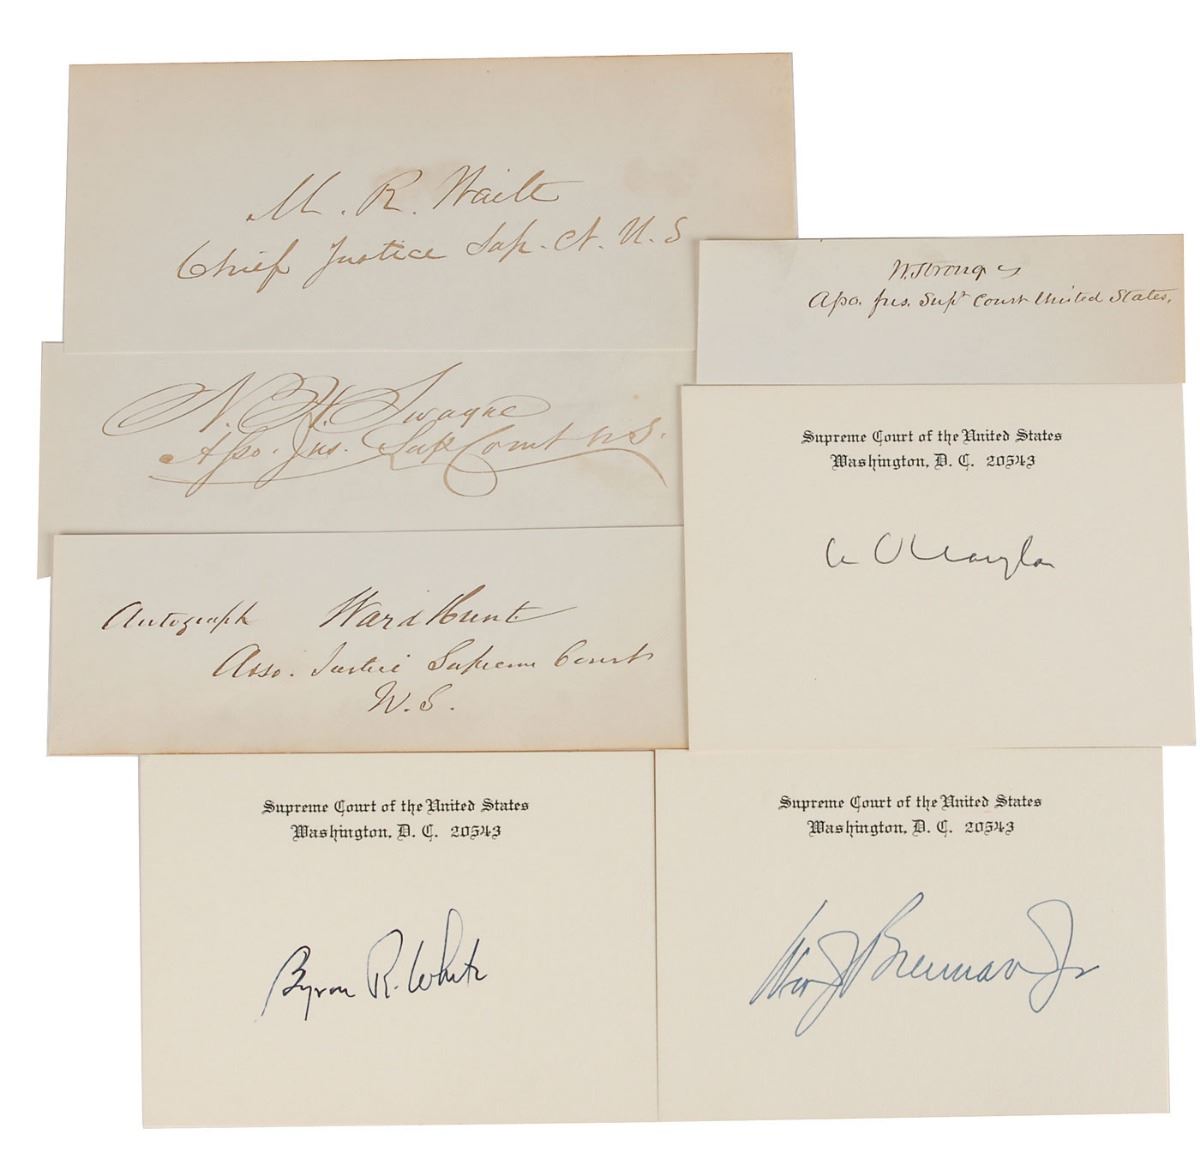 M. R. Waite
Chief Justice Sup. Ct. U. S
W. Strong
Asso. Jus. Supt Court United States,
N. H. Swayne
Asso. Jus. Sup Court U.S.
Supreme Court of the United States
Washington, D. C. 20543
Wm O Douglas
Autograph Ward Hunt
Asso. Justice Supreme Court
U. S.
Supreme Court of the United States
Washington, D. C. 20543
Byron R. White
Supreme Court of the United States
Washington, D. C. 20543
Wm J Brennan Jr